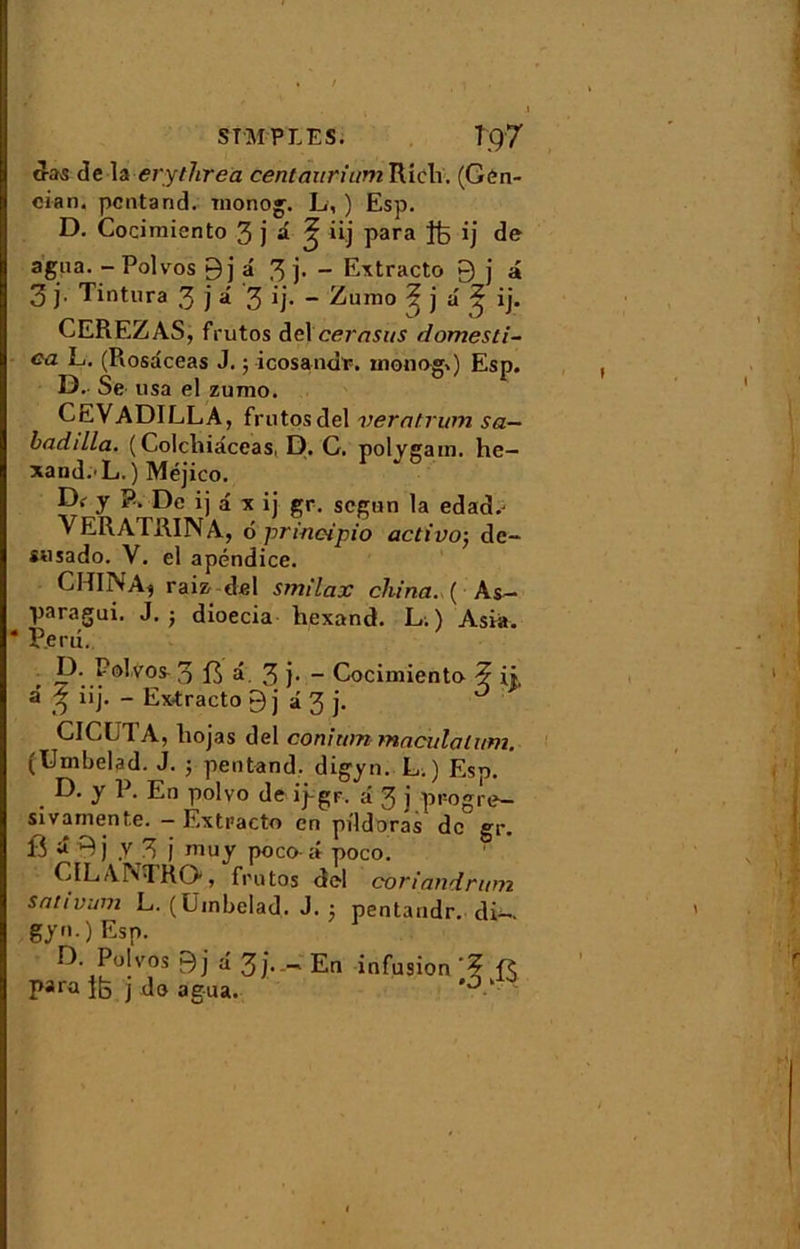 SIMPLES. 197
das de la erythrea centaurium Rich. (Gen-
cian. pentand. monog. L, ) Esp.
D. Cocimiento ʒ j á ℥ iij para ℔ ij de
agua. – Polvos ℈ j á ʒ j. – Extracto ℈ j á
ʒ j. Tintura ʒ j á ʒ ij. – Zumo ℥ j á ℥ ij.
CEREZAS, frutos del cerasus domesti-
ca L. (Rosáceas J. ; icosandr. monog.) Esp.
D. Se usa el zumo.
CEVADILLA, frutos del veratrum sa-
badilla. (Colchiáceas, D. C. polygam. he-
xand. L.) Méjico.
D. y P. De ij á x ij gr. segun la edad.
VERATRINA, ó principio activo; de-
susado. V. el apéndice.
CHINA, raiz del smilax china. ( As-
paragui. J. ; dioecia hexand. L.) Asia.
Perú.
D. Polvos ʒ ß á ʒ j. – Cocimiento ℥ ij
á ℥ iij. – Extracto ℈ j á ʒ j.
CICUTA, hojas del conium maculatum.
(Umbelad. J. ; pentand. digyn. L.) Esp.
D. y P. En polvo de ij gr. á ʒ j progre-
sivamente. – Extracto en píldoras de gr.
ß á ℈ j y ʒ j muy poco á poco.
CILANTRO, frutos del coriandrum
sativum L. (Umbelad. J. ; pentandr. di-
gyn.) Esp.
D. Polvos ℈ j á ʒ j. – En infusion ℥ ß
para ℔ j do agua.